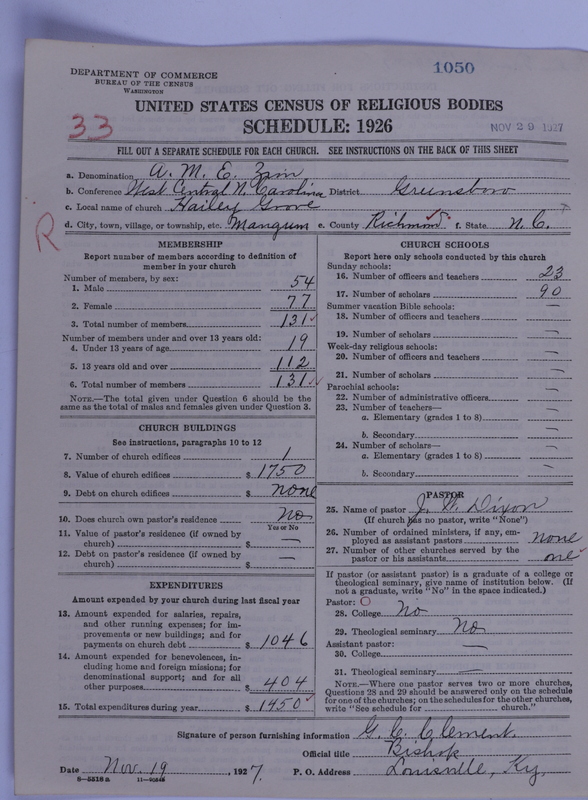 1050
DEPARTMENT OF COMMERCE
BUREAU OF THE CENSUS
WASHINGTON
UNITED STATES CENSUS OF RELIGIOUS BODIES
33
SCHEDULE: 1926
NOV 29 1927
FILL OUT A SEPARATE SCHEDULE FOR EACH CHURCH. SEE INSTRUCTIONS ON THE BACK OF THIS SHEET
a. Denomination A. M. E. Zion
b. Conference West Central N. Carolina District Greensboro
c. Local name of church Hailey Grove
R
d. City, town, village, or township, etc. Mangum e. County Richmond f. State N. C.
MEMBERSHIP
Report number of members according to definition of
member in your church
Number of members, by sex:
1. Male 54
2. Female 77
3. Total number of members 131
Number of members under and over 13 years old:
4. Under 13 years of age 19
5. 13 years old and over 112
6. Total number of members 131
NOTE.—The total given under Question 6 should be the
same as the total of males and females given under Question 3.
CHURCH BUILDINGS
See instructions, paragraphs 10 to 12
7. Number of church edifices 1
8. Value of church edifices $ 1750
9. Debt on church edifices $ none
10. Does church own pastor's residence No
Yes or No
11. Value of pastor's residence (if owned by
church) $ —
12. Debt on pastor's residence (if owned by
church) $ —
EXPENDITURES
Amount expended by your church during last fiscal year
13. Amount expended for salaries, repairs,
and other running expenses; for im-
provements or new buildings; and for
payments on church debt $ 1046
14. Amount expended for benevolences, in-
cluding home and foreign missions; for
denominational support; and for all
other purposes $ 404
15. Total expenditures during year $ 1450
CHURCH SCHOOLS
Report here only schools conducted by this church
Sunday schools:
16. Number of officers and teachers 23
17. Number of scholars 90
Summer vacation Bible schools:
18. Number of officers and teachers —
19. Number of scholars —
Week-day religious schools:
20. Number of officers and teachers —
21. Number of scholars —
Parochial schools:
22. Number of administrative officers —
23. Number of teachers—
a. Elementary (grades 1 to 8) —
b. Secondary —
24. Number of scholars—
a. Elementary (grades 1 to 8) —
b. Secondary —
PASTOR
25. Name of pastor J. W. Dixon
(If church has no pastor, write "None")
26. Number of ordained ministers, if any, em-
ployed as assistant pastors none
27. Number of other churches served by the
pastor or his assistants one
If pastor (or assistant pastor) is a graduate of a college or
theological seminary, give name of institution below. (If
not a graduate, write "No" in the space indicated.)
Pastor:
28. College No
29. Theological seminary No
Assistant pastor:
30. College —
31. Theological seminary —
NOTE.—Where one pastor serves two or more churches,
Questions 28 and 29 should be answered only on the schedule
for one of the churches; on the schedules for the other churches,
write "See schedule for church."
Signature of person furnishing information G. C. Clement
Official title Bishop
Date Nov. 19, 1927. P. O. Address Louisville, Ky.
8—5516a 11—